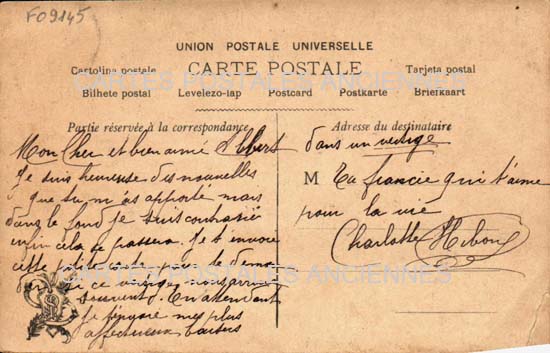 F09145
UNION POSTALE UNIVERSELLE
Cartolina postale CARTE POSTALE Tarjeta postal
Bilhete postal Levelezo-lap Postcard Postkarte Briefkaart
CARTES POSTALES ANCIENNES
Partie réservée à la correspondance
Adresse du destinataire
Mon Cher et bien aimé Albert
Je suis heureuse des nouvelles
que tu m'as apporté mais
dans le fond je suis
enfin cela se passera. Je t'envoie
cette petite carte pas de
si ce
souvent. En attendant
mes plus
affectueux baisers
dans un vertige
M Ta fiancie qui t'aime
pour la vie
Charlotte
CARTES POSTALES ANCIENNES